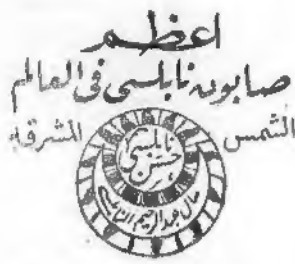 اعظم
صابون نابلسى فى العالم
الشمس المشرقة
نابلسى
حسن
مال عبد الرحيم النابلسى